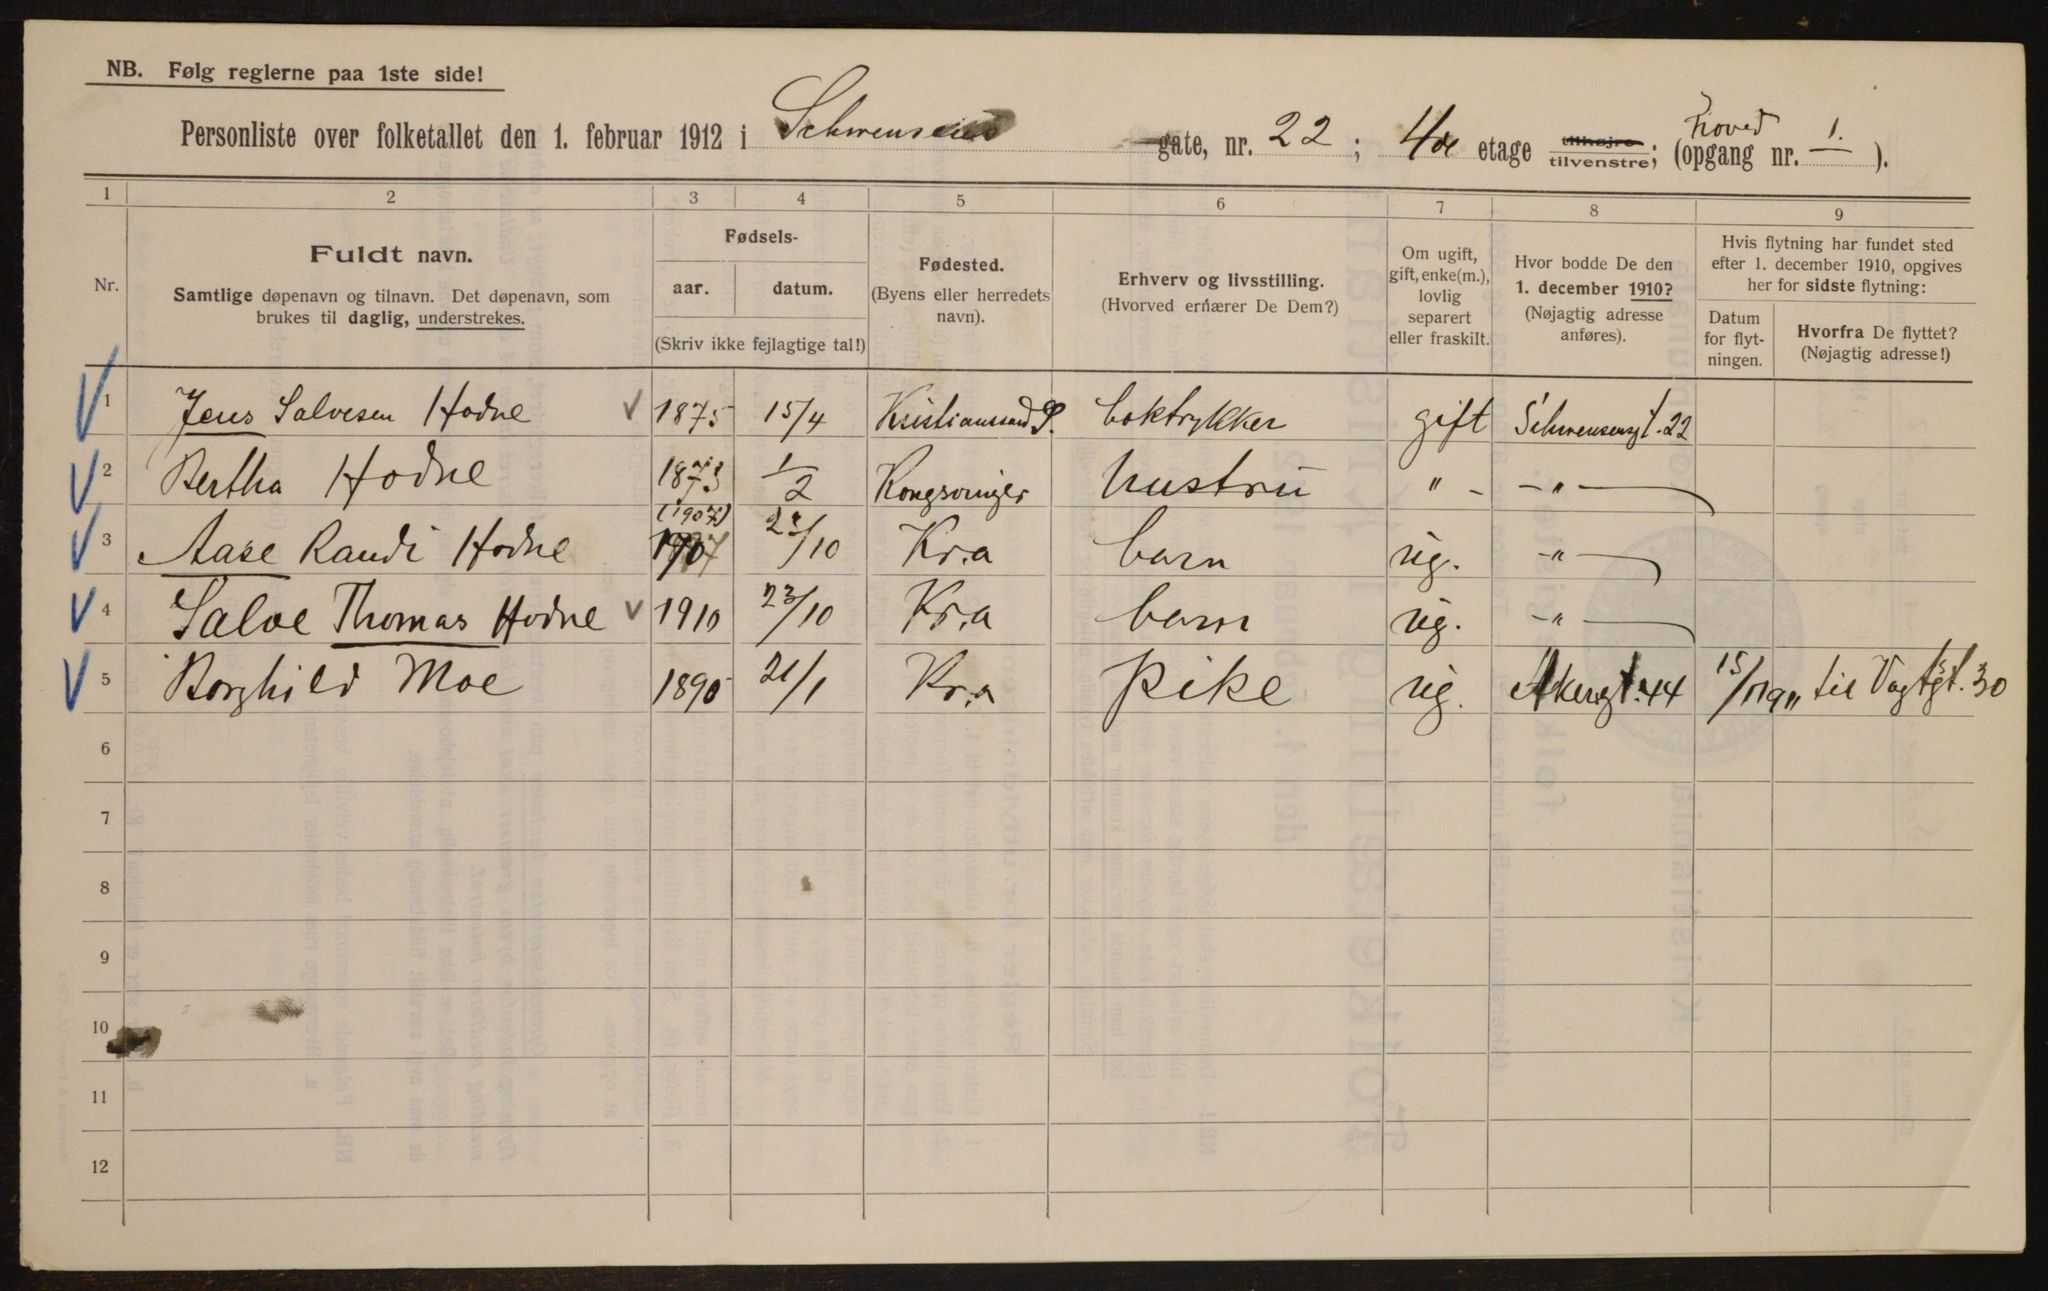 NB. Følg reglerne paa 1ste side!
Personliste over folketallet den 1. februar 1912 i Schwensens gate, nr. 22 ; 4de etage tilhøire tilvenstre; (hoved opgang nr. 1. ).
1 2 3 4 5 6 7 8 9
Nr.
Fuldt navn.
Samtlige døpenavn og tilnavn. Det døpenavn, som
brukes til daglig, understrekes.
Fødsels-
aar. datum.
(Skriv ikke fejlagtige tal!)
Fødested.
(Byens eller herredets
navn).
Erhverv og livsstilling.
(Hvorved ernærer De Dem?)
Om ugift,
gift, enke(m.),
lovlig
separert
eller fraskilt.
Hvor bodde De den
1. december 1910?
(Nøjagtig adresse
anføres).
Hvis flytning har fundet sted
efter 1. december 1910, opgives
her for sidste flytning:
Datum
for flyt-
ningen.
Hvorfra De flyttet?
(Nøjagtig adresse!)
1 Jens Salvesen Hodne 1875 15/4 Kristianssand S. boktrykker gift Schwensensgt. 22
2 Bertha Hodne 1873 1/2 Kongsvinger hustru " - - " -
(1907)
3 Aase Randi Hodne 1907 /10 Kr.a barn ug. - " -
4 Salve Thomas Hodne 1910 23/10 Kr.a barn ug. - " -
5 Borghild Moe 1890 21/1 Kr.a Pike ug. Akersgt. 44 15/1 19 til Vogtsgt. 30
6
7
8
9
10
11
12